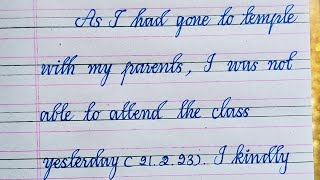 As I had gone to temple
with my parents, I was not
able to attend the class
yesterday ( 21.2.23). I kindly